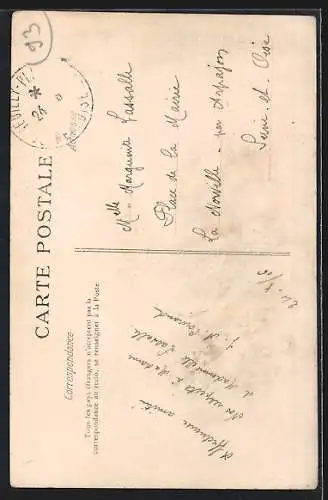 93
CARTE POSTALE
Correspondance
Tous les pays étrangers n'acceptent pas la
correspondance au recto, se renseigner à la Poste
Melle Marguerite Lassalle
Place de la Mairie
La Norville - par Arpajon
Seine et Oise
amitié
Nos respects à Madame
et Mademoiselle Lassalle